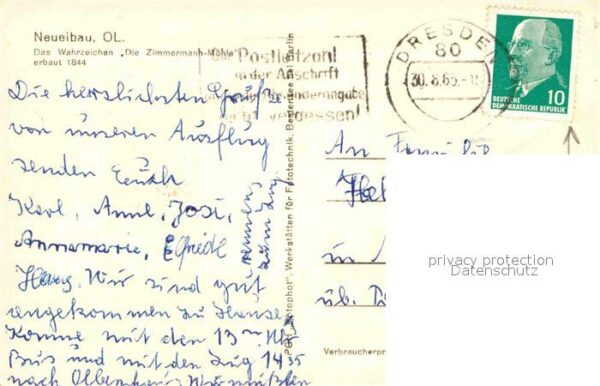 Neueibau, OL.
Das Wahrzeichen „Die Zimmermann-Mühle"
erbaut 1844
Die Postleitzahl
in der Anschrift
und Absenderangabe
nicht vergessen!
DRESDEN
80
30.8.65.-
10
DEUTSCHE
DEMOKRATISCHE REPUBLIK
Die herzlichsten Grüße
von unseren Ausflug
senden Euch
Karl, Anne, Josi,
Annemarie, Elfriede
Hans. Wir sind gut
angekommen zu Hause
Komme mit den 13
Bus und mit den Zug 14 35
nach Olbernhau Wir
rennen
zum Zug
Werkstätten für Fototechnik, Berlin
An Familie
in
üb.
Verbraucherpr
privacy protection
Datenschutz